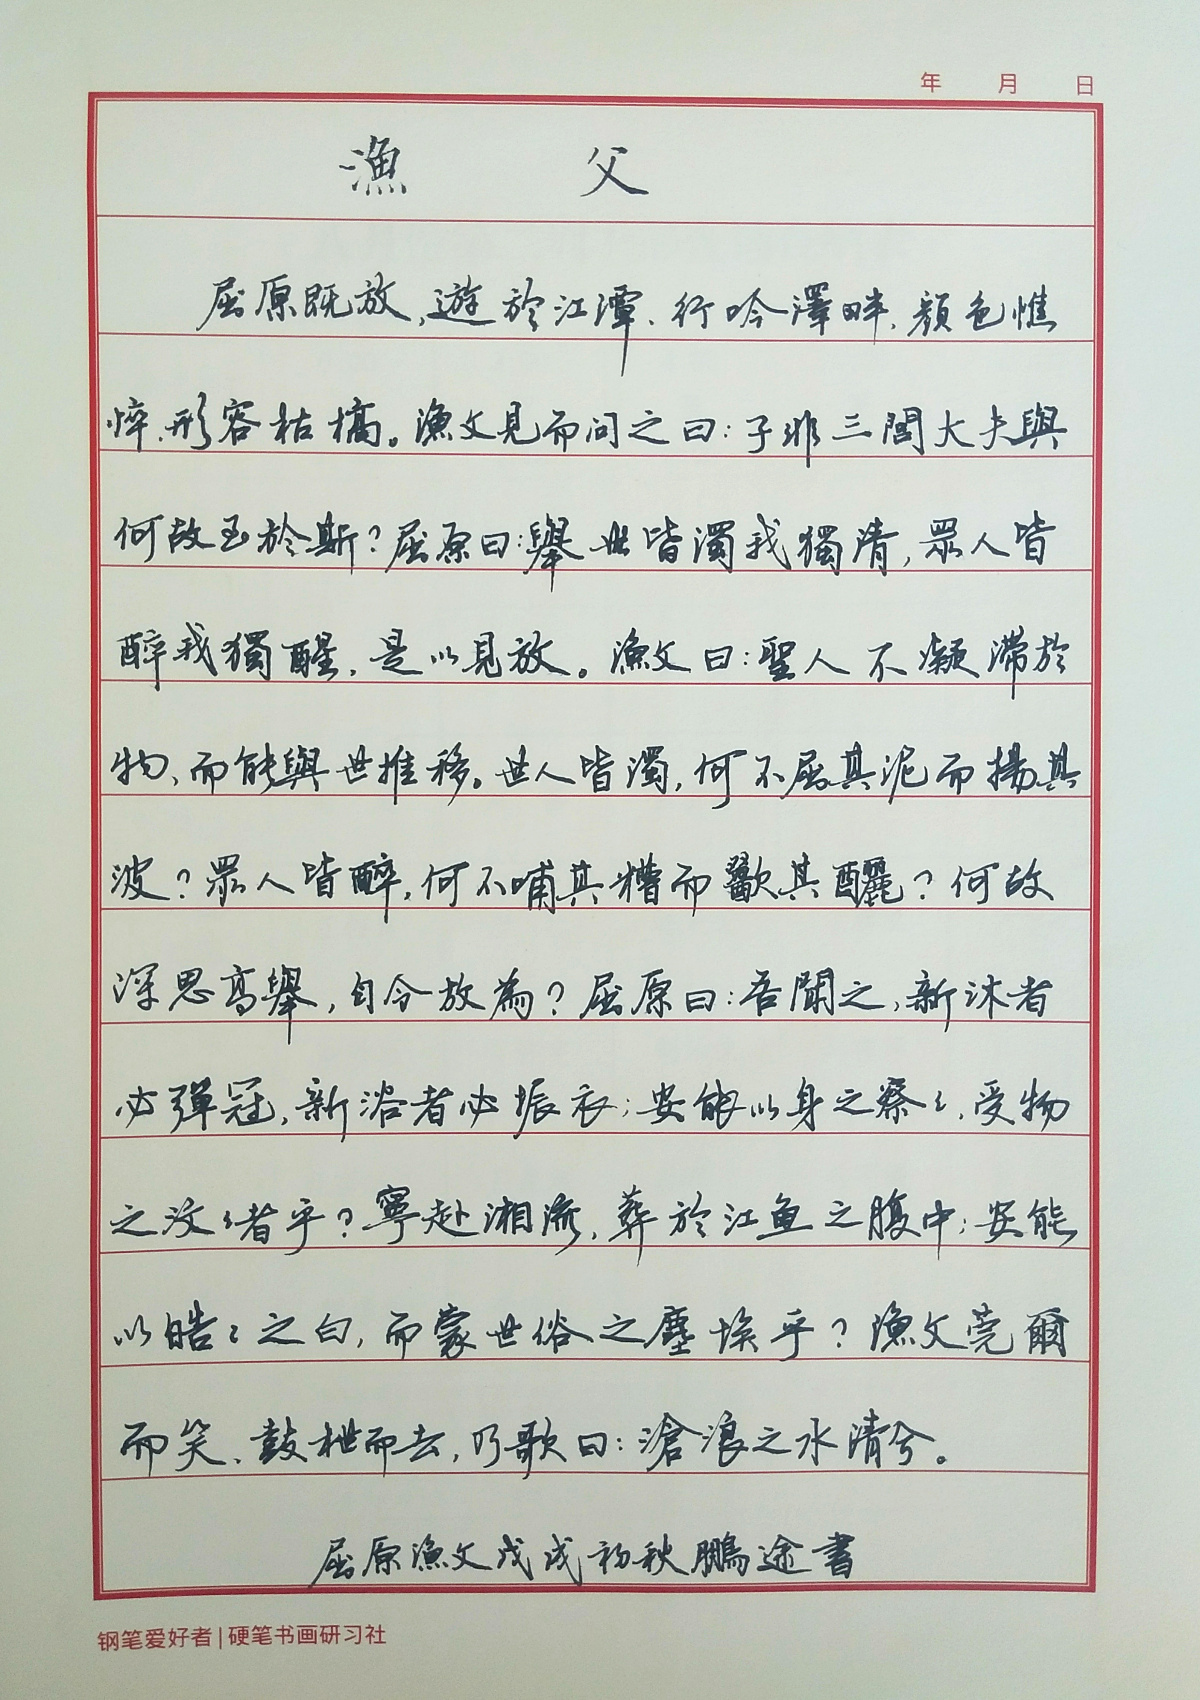 年 月 日
漁 父
屈原既放,遊於江潭、行吟澤畔,顏色憔
悴、形容枯槁。漁父見而问之曰:子非三閭大夫與
何故至於斯?屈原曰:舉世皆濁我獨清,眾人皆
醉我獨醒,是以見放。漁父曰:聖人不凝滯於
物、而能與世推移。世人皆濁,何不屈其泥而揚其
波?眾人皆醉,何不哺其糟而歠其釃?何故
深思高舉,自令放為?屈原曰:吾聞之,新沐者
必彈冠,新浴者必振衣;安能以身之察〻,受物
之汶〻者乎?寧赴湘流,葬於江鱼之腹中;安能
以皓〻之白,而蒙世俗之塵埃乎?漁父莞爾
而笑、鼓枻而去,乃歌曰:滄浪之水清兮。
屈原漁父戊戌初秋鵬途書
钢笔爱好者|硬笔书画研习社